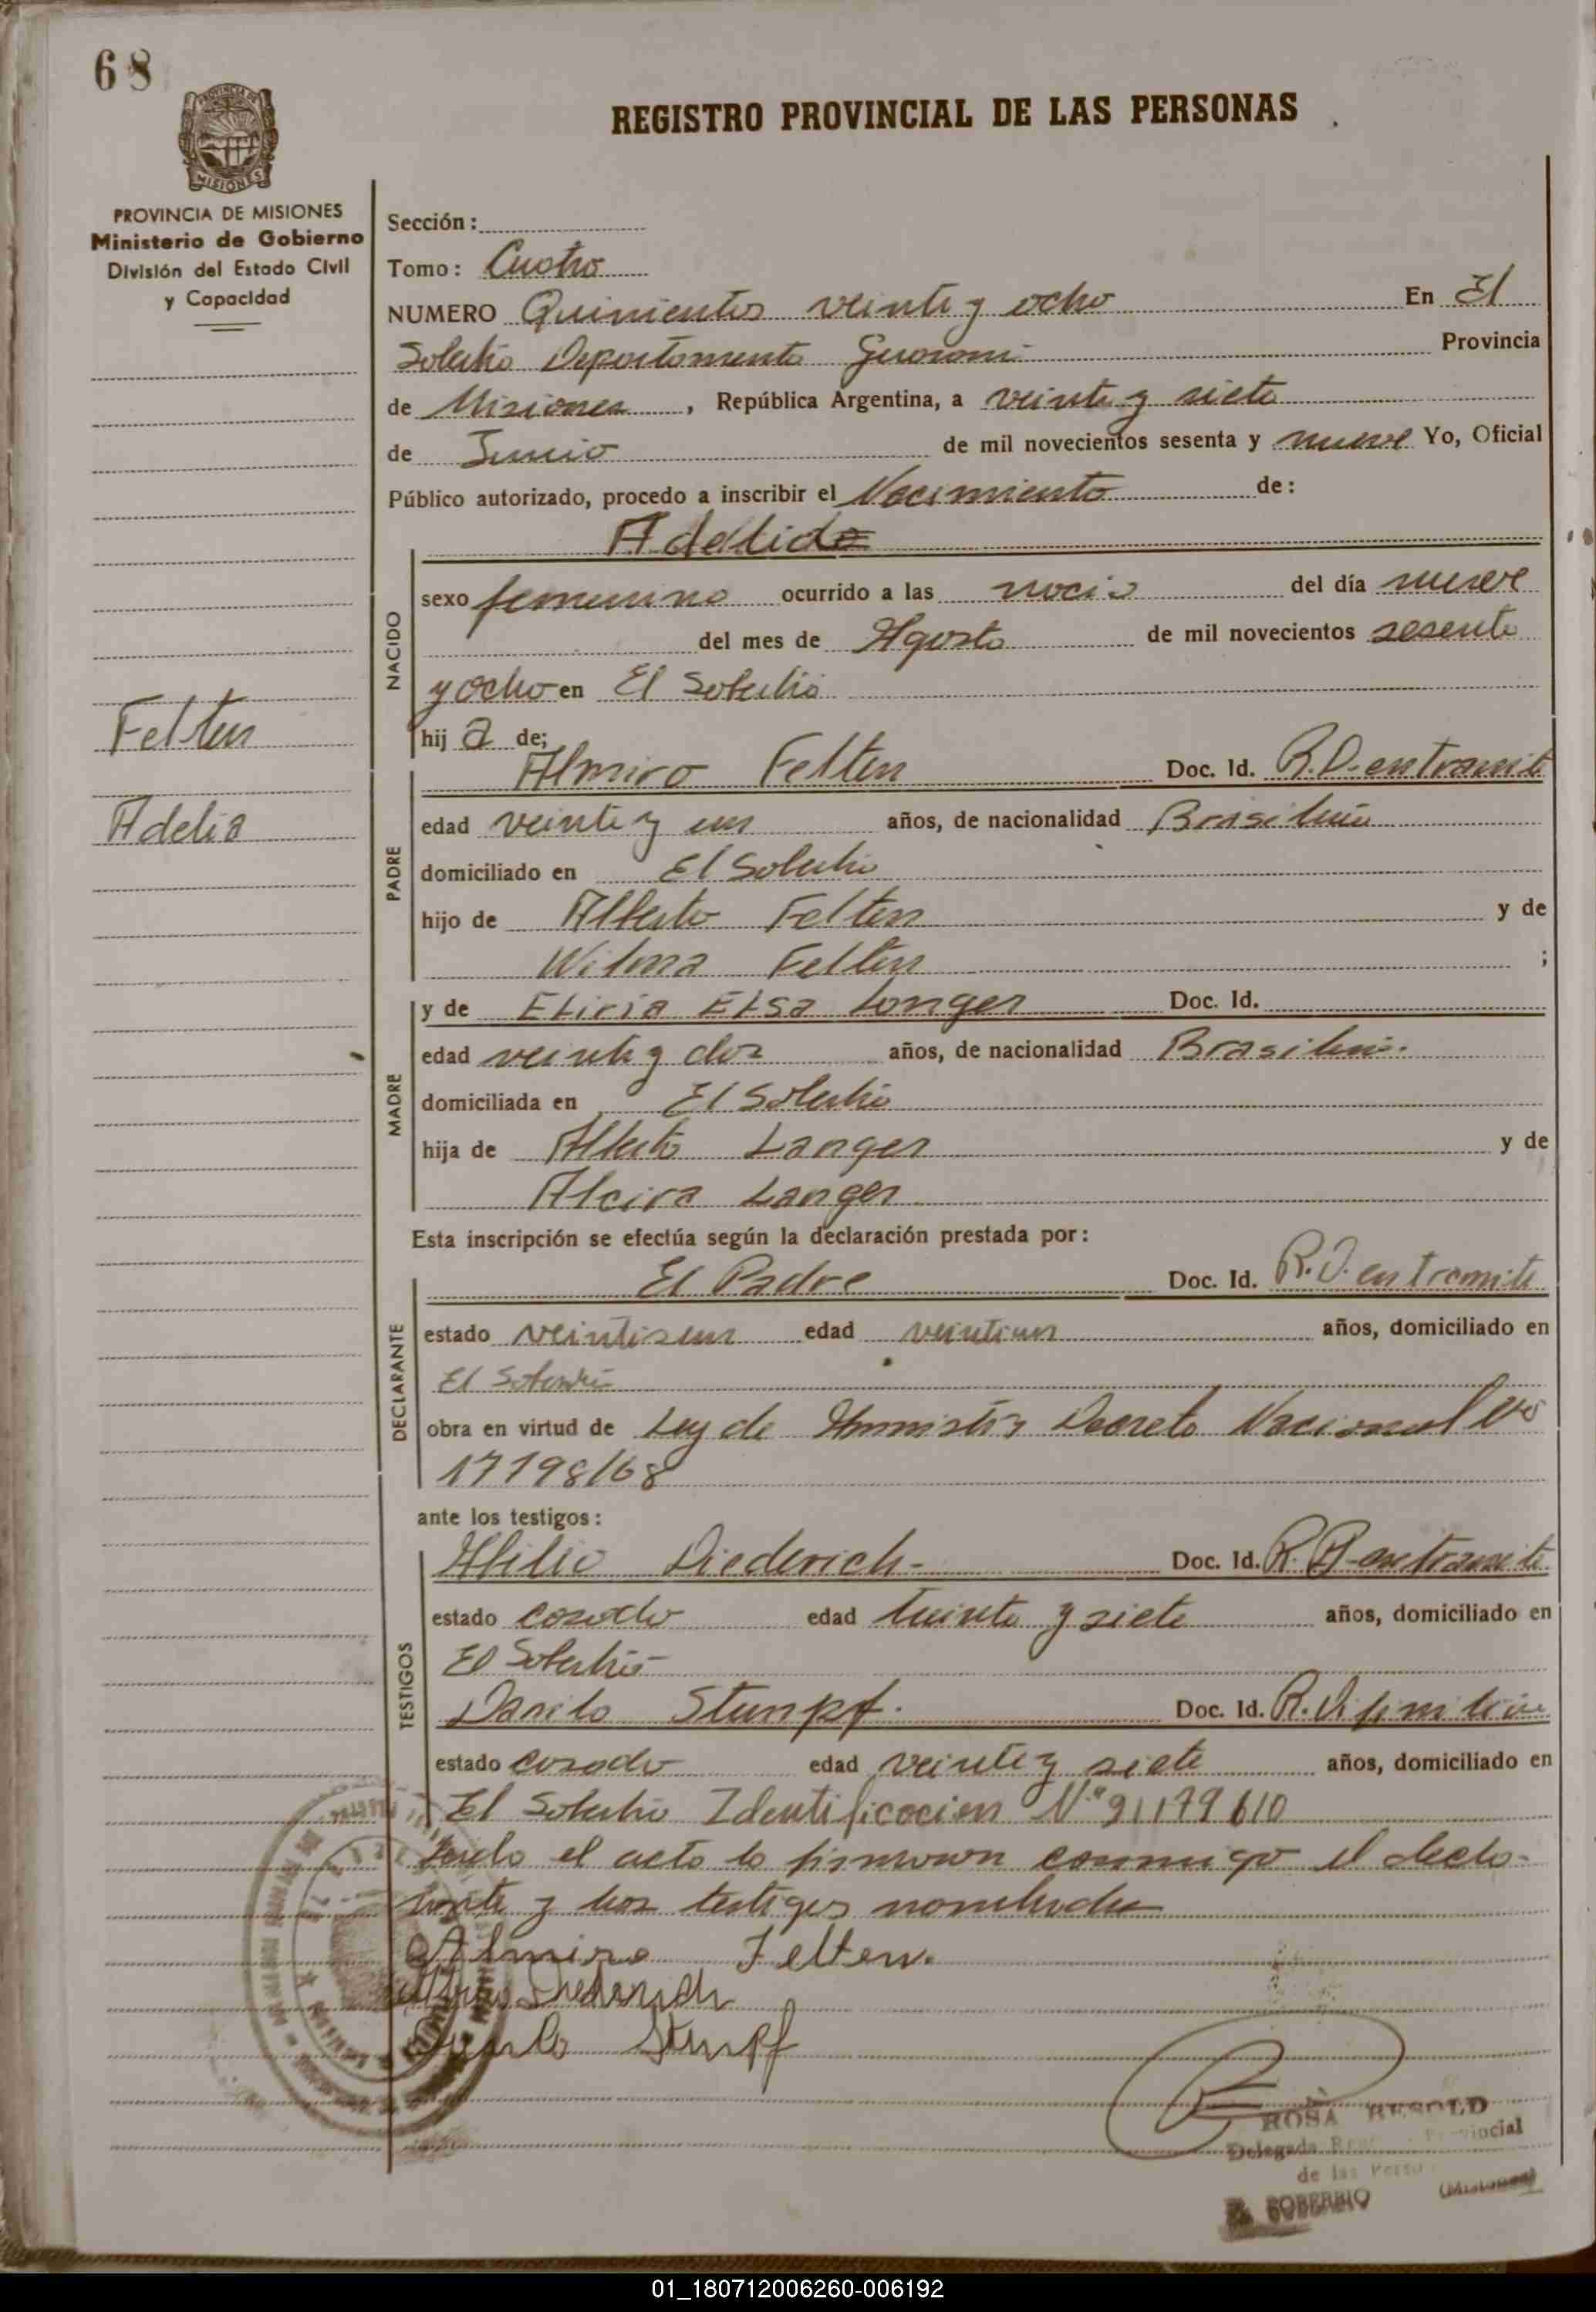 68
REGISTRO PROVINCIAL DE LAS PERSONAS
MISIONES
PROVINCIA DE MISIONES
Ministerio de Gobierno
División del Estado Civil
y Capacidad
Sección:
Tomo: Cuatro
NUMERO Quinientos veinte y ocho En El
Soberbio Departamento Guarani Provincia
de Misiones, República Argentina, a veinte y siete
de Junio de mil novecientos sesenta y nueve Yo, Oficial
Público autorizado, procedo a inscribir el Nacimiento de:
NACIDO
sexo femenino ocurrido a las del día nueve
del mes de Agosto de mil novecientos sesenta
y ocho en El Soberbio
hij a de;
Felten
Adelia
PADRE
Almiro Felten Doc. Id. R.D. en tramite
edad veinte y un años, de nacionalidad Brasileña
domiciliado en El Soberbio
hijo de Alberto Felten y de
Wilma Felten ;
MADRE
y de Eliria Elsa Longer Doc. Id.
edad veinte y dos años, de nacionalidad Brasileña.
domiciliada en El Soberbio
hija de Alberto Langer y de
Alcira Langer
Esta inscripción se efectúa según la declaración prestada por:
DECLARANTE
El Padre Doc. Id. R.D. en tramite
estado edad veintiun años, domiciliado en
El Soberbio
obra en virtud de Ley de Decreto Nacional Nº
17798/68
ante los testigos:
TESTIGOS
Abilio Diederich- Doc. Id. en tramite
estado casado edad treinta y siete años, domiciliado en
El Soberbio
Danilo Stumpf. Doc. Id.
estado casado edad veinte y siete años, domiciliado en
El Soberbio Identificacion Nº 91179610
Leido el acto lo firmaron conmigo el decla-
rante y los testigos nombrados
Almiro Felten.
Diederich
Danilo Stumpf
ROSA BESOLD
Delegada Provincial
de las
EL SOBERBIO (Misiones)
01_180712006260-006192